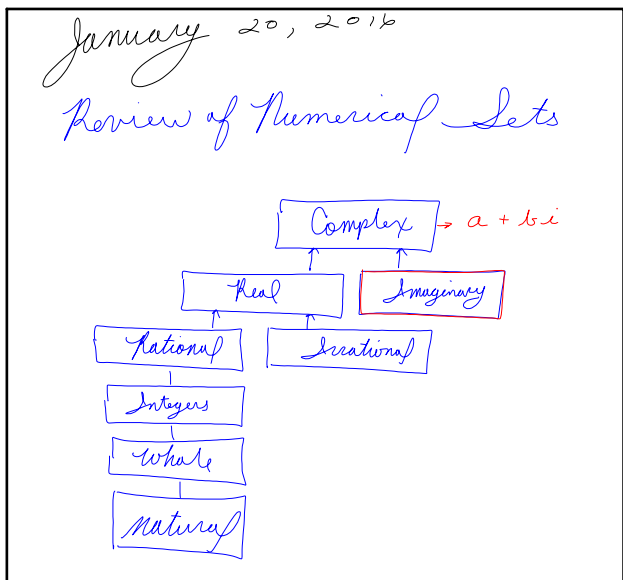 January 20, 2016
Review of Numerical Sets
Complex → a + bi
Real
Imaginary
Rational
Irrational
Integers
Whole
Natural